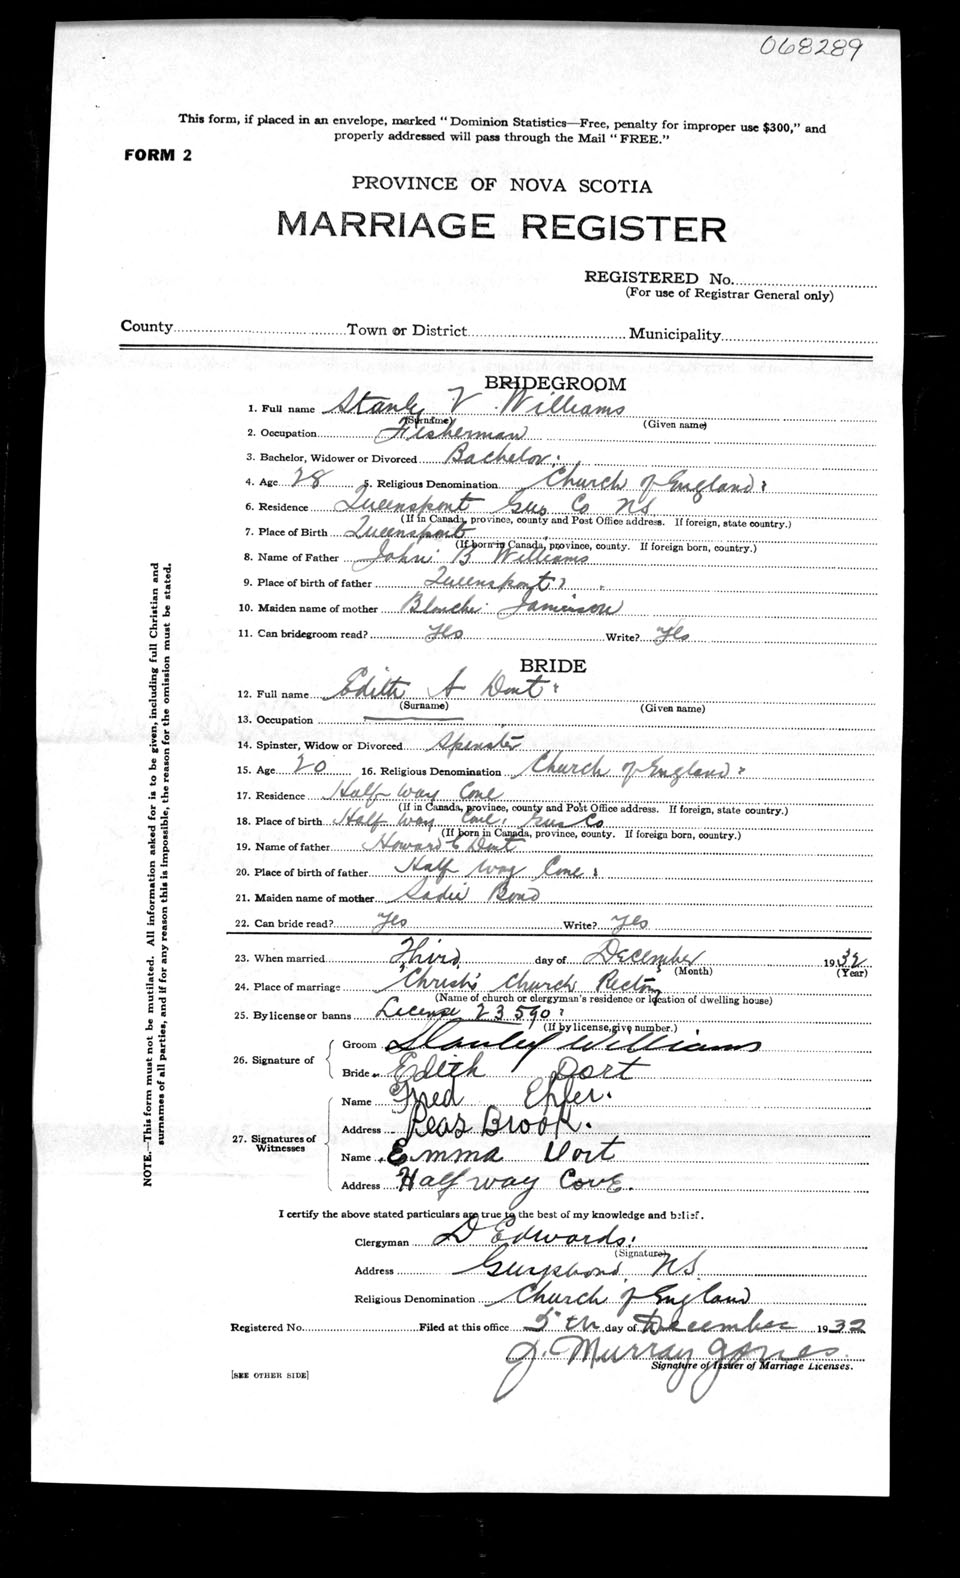 068289
This form, if placed in an envelope, marked "Dominion Statistics—Free, penalty for improper use $300," and
properly addressed will pass through the Mail "FREE."
FORM 2
PROVINCE OF NOVA SCOTIA
MARRIAGE REGISTER
REGISTERED No.
(For use of Registrar General only)
County Town or District Municipality
BRIDEGROOM
1. Full name Stanly V Williams
(Surname) (Given name)
2. Occupation Fisherman
3. Bachelor, Widower or Divorced Bachelor
4. Age 28 5. Religious Denomination Church of England
6. Residence Queensport Guy Co NS
(If in Canada, province, county and Post Office address. If foreign, state country.)
7. Place of Birth Queensport
(If born in Canada, province, county. If foreign born, country.)
8. Name of Father John B Williams
9. Place of birth of father Queensport
10. Maiden name of mother Blanche Jamieson
11. Can bridegroom read? Yes Write? Yes
BRIDE
12. Full name Edith A Dort
(Surname) (Given name)
13. Occupation
14. Spinster, Widow or Divorced Spinster
15. Age 20 16. Religious Denomination Church of England
17. Residence Half Way Cove
(If in Canada, province, county and Post Office address. If foreign, state country.)
18. Place of birth Half Way Cove, Guy Co
(If born in Canada, province, county. If foreign born, country.)
19. Name of father Howard C Dort
20. Place of birth of father Half Way Cove
21. Maiden name of mother Sadie Bond
22. Can bride read? Yes Write? Yes
23. When married Third day of December 1932
(Month) (Year)
24. Place of marriage Christ's Church Rectory
(Name of church or clergyman's residence or location of dwelling house)
25. By license or banns License 23590
(If by license, give number.)
26. Signature of
Groom Stanley Williams
Bride Edith Dort
27. Signatures of Witnesses
Name Fred Ehler.
Address Peas Brook.
Name Emma Dort
Address Half way Cove.
I certify the above stated particulars are true to the best of my knowledge and belief.
Clergyman D Edwards
(Signature)
Address Guysboro, NS.
Religious Denomination Church of England
Registered No. Filed at this office 5th day of December 1932
J. Murray Jones
Signature of Issuer of Marriage Licenses.
[SEE OTHER SIDE]
NOTE.—This form must not be mutilated. All information asked for is to be given, including full Christian and
surnames of all parties, and if for any reason this is impossible, the reason for the omission must be stated.